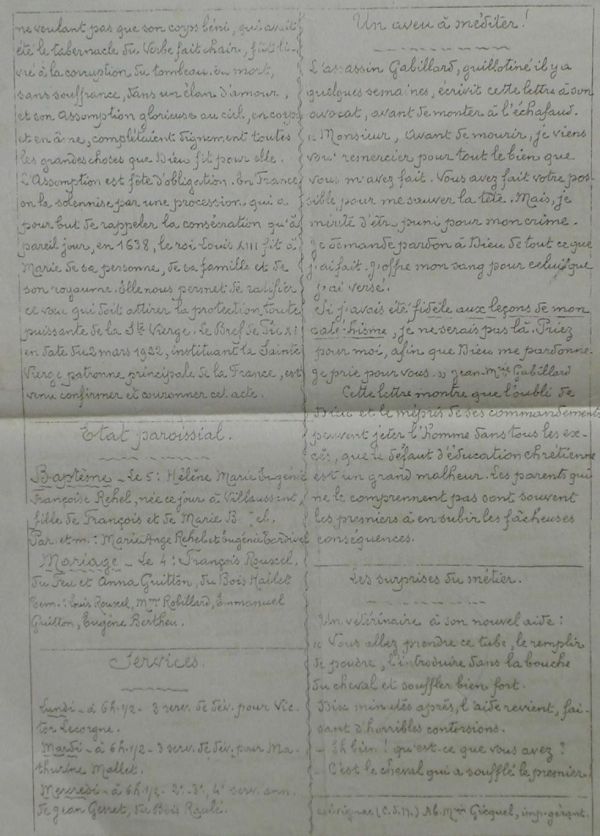 ne voulant pas que son corps béni, qui avait
été le tabernacle du Verbe fait chair, fût li-
vré à la corruption du tombeau. Sa mort,
sans souffrance, dans un élan d'amour,
et son Assomption glorieuse au ciel, en corps
et en âme, complétaient dignement toutes
les grandes choses que Dieu fit pour elle.
L'Assomption est fête d'obligation. En France
on la solennise par une procession qui a
pour but de rappeler la consécration qu'à
pareil jour, en 1638, le roi Louis XIII fit à
Marie de sa personne, de sa famille et de
son royaume. Elle nous permet de ratifier
ce vœu qui doit attirer la protection toute
puissante de la Ste Vierge. Le Bref de Pie XI
en date du 2 mars 1922, instituant la Sainte
Vierge patronne principale de la France, est
venu confirmer et couronner cet acte.
Etat paroissial.
Baptême - Le 5 : Hélène Marie Eugénie
Françoise Rehel, née ce jour à
fille de François et de Marie
Par. et m : Marie Ange Rehel et Eugénie
Mariage - Le 4 : François Rouxel,
du Feu et Anna Guitton, du Bois Hallet
Tem. : Louis Rouxel, Mme Robillard, Emmanuel
Guitton, Eugène Bertheu.
Services.
Lundi - à 6h.1/2 - 3 serv. de dév. pour Vic-
tor Lecorgne.
Mardi - à 6h.1/2 - 3 serv. de dév. pour Ma-
thurine Mallet.
Mercredi - à 6h.1/2 - 2e. 3e. 4e serv. ann.
de Jean Gesret, du Bois
Un aveu à méditer !
L'assassin Gabillard, guillotiné il y a
quelques semaines, écrivit cette lettre à son
avocat, avant de monter à l'échafaud.
« Monsieur, Avant de mourir, je viens
vous remercier pour tout le bien que
vous m'avez fait. Vous avez fait votre pos-
sible pour me sauver la tête. Mais, je
mérite d'être puni pour mon crime.
Je demande pardon à Dieu de tout ce que
j'ai fait. J'offre mon sang pour celui que
j'ai versé.
Si j'avais été fidèle aux leçons de mon
catéchisme, je ne serais pas là. Priez
pour moi, afin que Dieu me pardonne.
Je prie pour vous. » Jean-Mie Gabillard
Cette lettre montre que l'oubli de
Dieu et le mépris de ses commandements
peuvent jeter l'homme dans tous les ex-
cès, que le défaut d'éducation chrétienne
est un grand malheur. Les parents qui
ne le comprennent pas sont souvent
les premiers à en subir les fâcheuses
conséquences.
Les surprises du métier.
Un vétérinaire à son nouvel aide :
« Vous allez prendre ce tube, le remplir
de poudre, l'introduire dans la bouche
du cheval et souffler bien fort.
Dix minutes après, l'aide revient, fai-
sant d'horribles contorsions.
- Eh bien ! qu'est-ce que vous avez ?
- C'est le cheval qui a soufflé le premier.
(C.d.N.) Ab. Gicquel, imp-gérant.